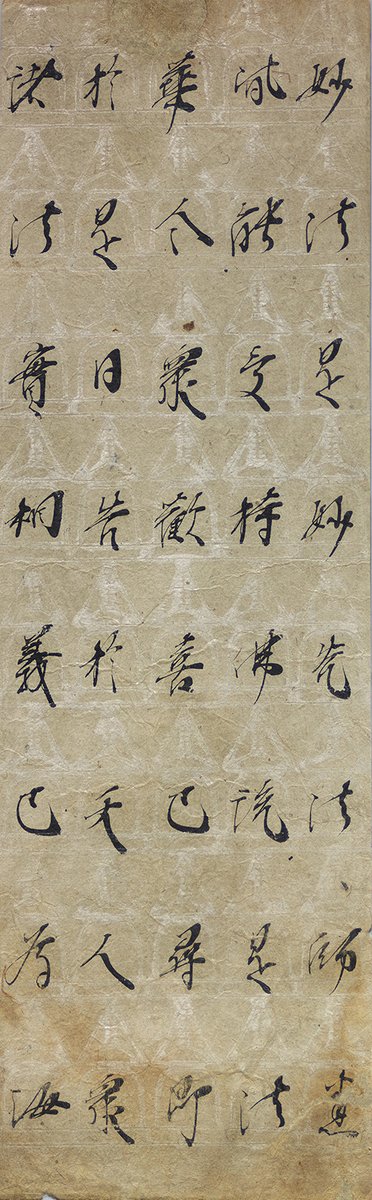 妙法是妙光法師悉
皆能受持佛說是法
華令眾歡喜已尋即
於是日告於天人眾
諸法實相義已為汝